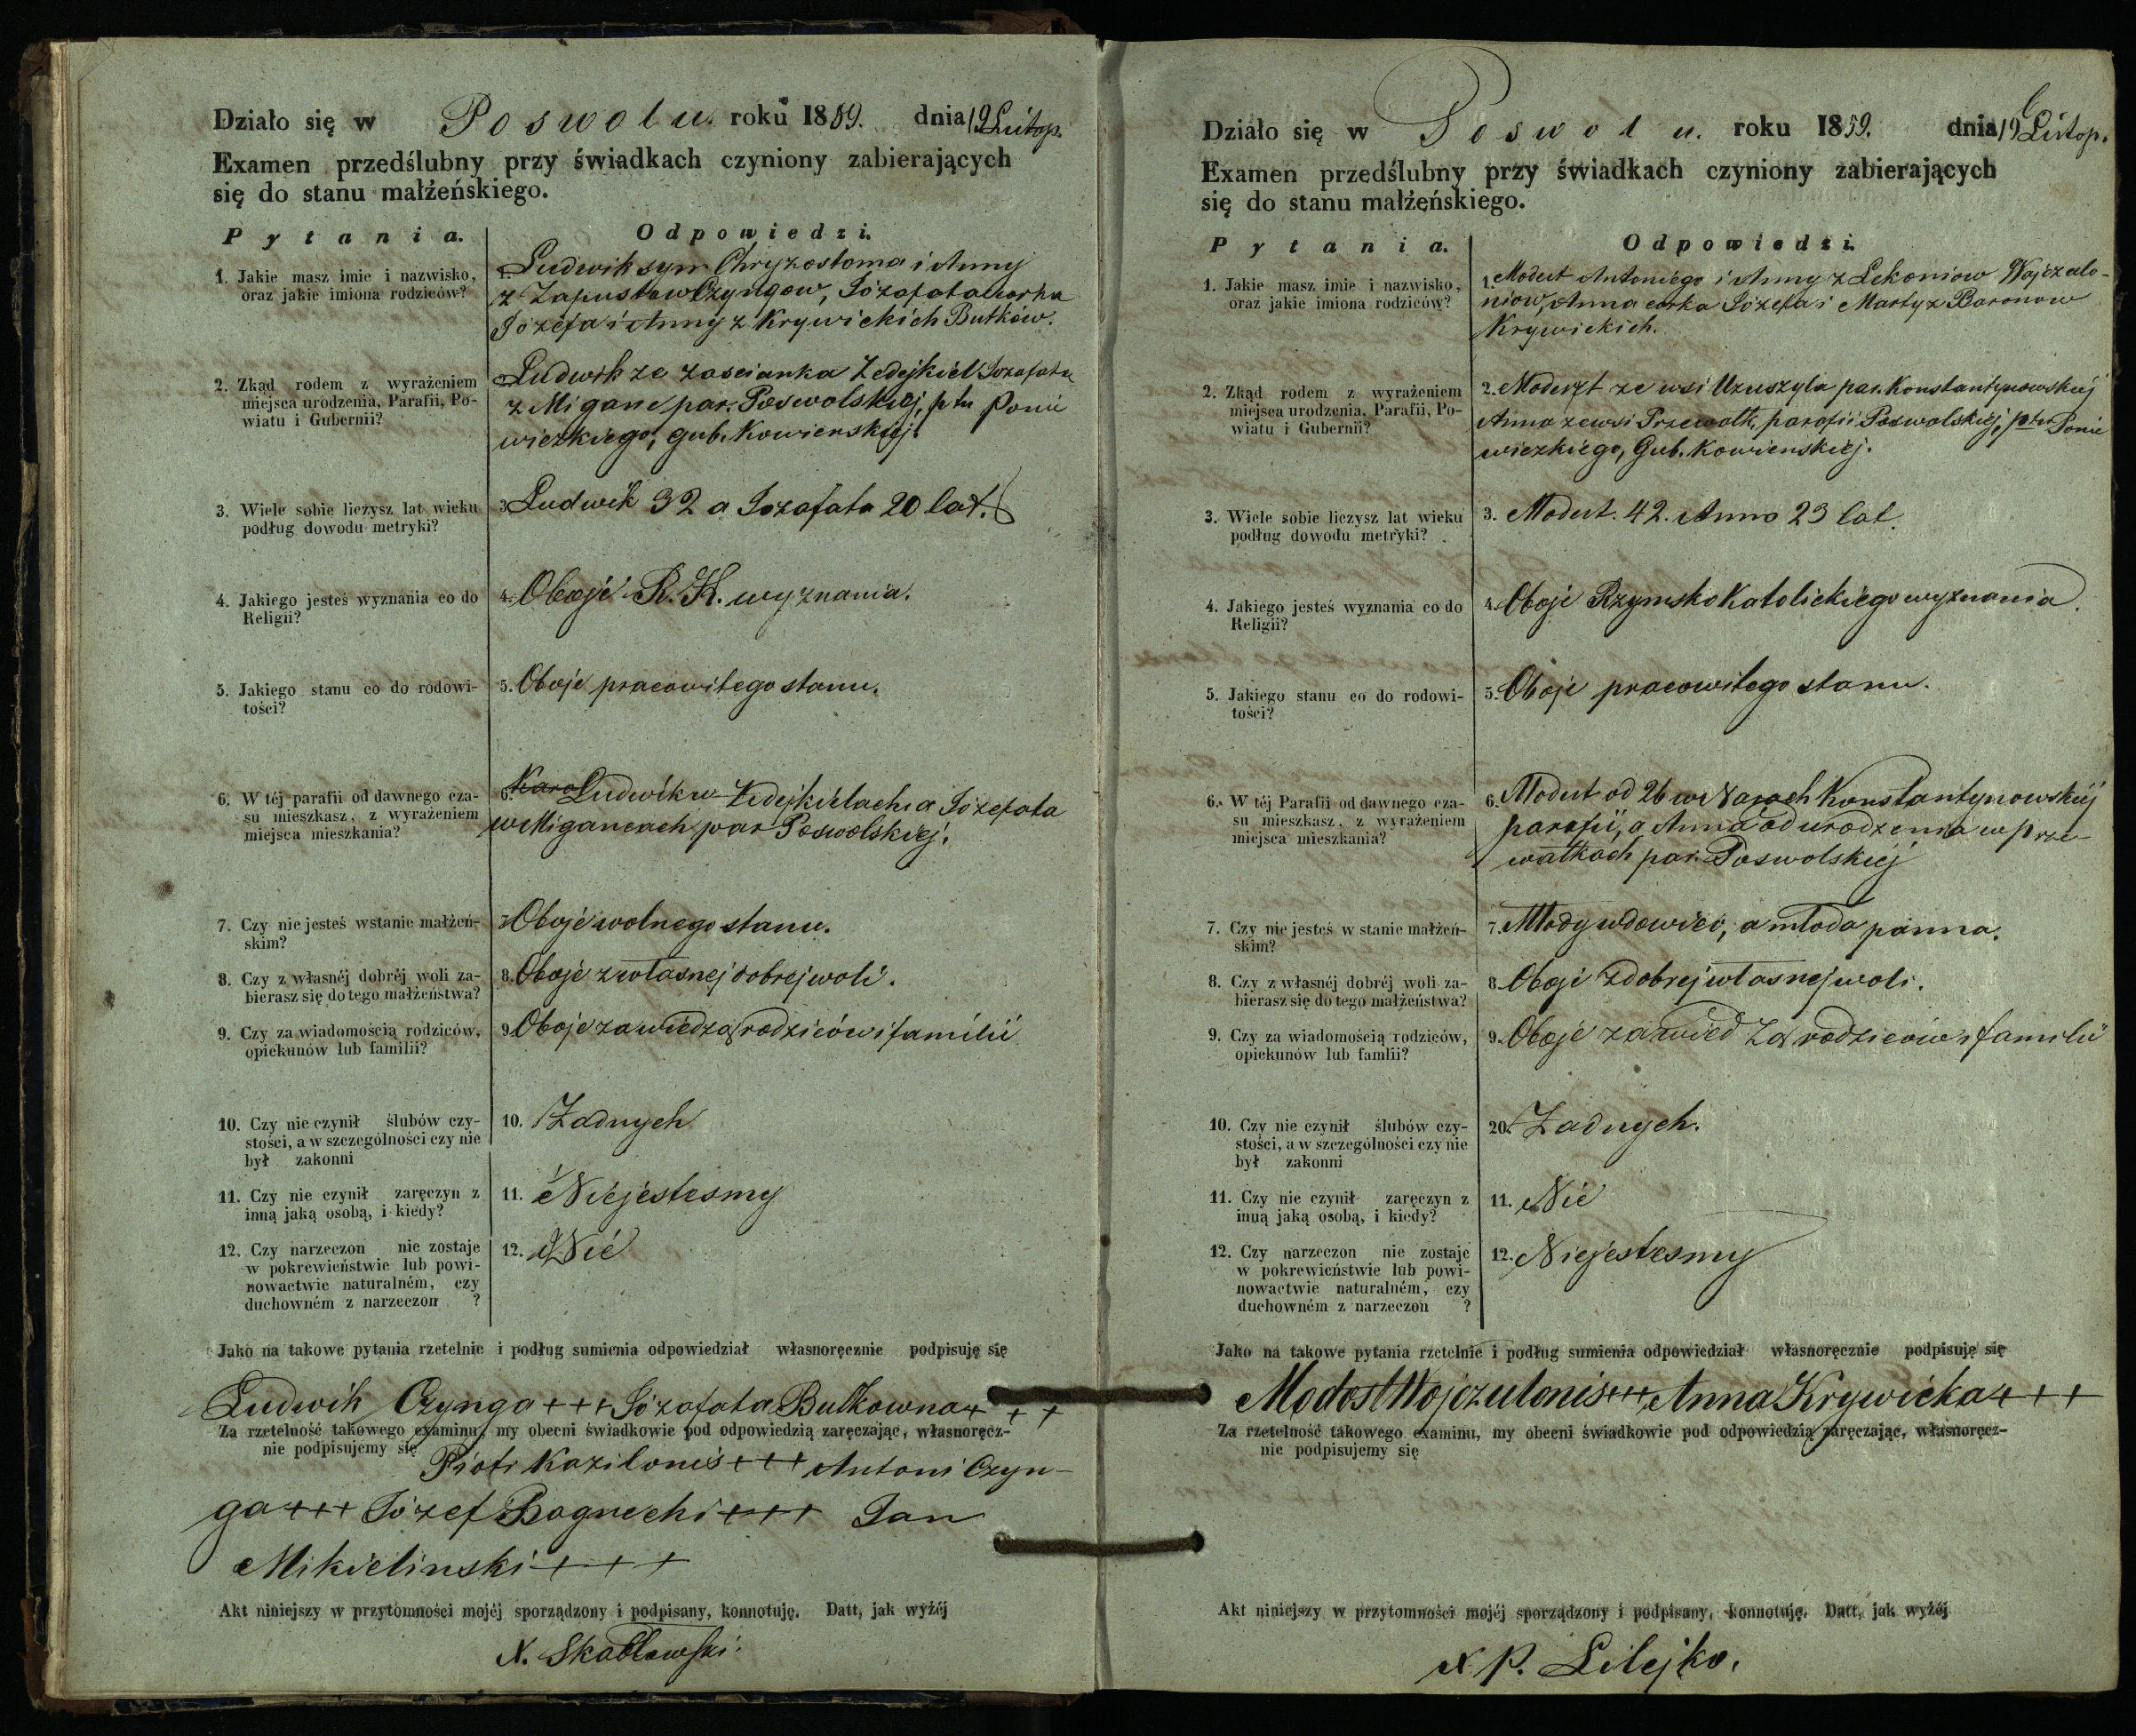 Działo się w Poswolu. roku 1859. dnia 19 Listop.
Examen przedślubny przy świadkach czyniony zabierających
się do stanu małżeńskiego.
Pytania. Odpowiedzi.
1. Jakie masz imie i nazwisko,
oraz jakie imiona rodziców?
1. Ludwik syn Chryzostoma i Anny
z Zapustow Czyngow, Józafata corka
Józefa i Anny z Krywickich Butkow.
2. Zkąd rodem z wyrażeniem
miejsca urodzenia, Parafii, Po-
wiatu i Gubernii?
Ludwik ze zascianka Zedejkiel Jozafata
z Migane par. Poswolskiej, ptu Ponie
wiezkiego, gub. Kowienskiej.
3. Wiele sobie liczysz lat wieku
podług dowodu metryki?
3 Ludwik 32 a Jozafata 20 lat.
4. Jakiego jesteś wyznania co do
Religii?
4. Oboje R. K. wyznania.
5. Jakiego stanu co do rodowi-
tości?
5. Oboje pracowitego stanu.
6. W téj parafii od dawnego cza-
su mieszkasz, z wyrażeniem
miejsca mieszkania?
6. Karo Ludwik w Zedejkielach a Józefata
w Migancach par Poswolskiej.
7. Czy nie jesteś wstanie małżeń-
skim?
7 Oboje wolnego stanu.
8. Czy z własnéj dobréj woli za-
bierasz się do tego małżeństwa?
8. Oboje z własnej dobrej woli.
9. Czy za wiadomością rodziców,
opiekunów lub familii?
9. Oboje za wiedzą rodziców i familii
10. Czy nie czynił ślubów czy-
stości, a w szczególności czy nie
był zakonni
10. Żadnych
11. Czy nie czynił zaręczyn z
inną jaką osobą, i kiedy?
11. Niejestesmy
12. Czy narzeczon nie zostaje
w pokrewieństwie lub powi-
nowactwie naturalném, czy
duchowném z narzeczon ?
12. Nie
Jako na takowe pytania rzetelnie i podług sumienia odpowiedział własnoręcznie podpisuję się
Ludwik Czynga +++ Józafata Butkowna +++
Za rzetelność takowego examinu, my obecni świadkowie pod odpowiedzią zaręczając, własnoręcz-
nie podpisujemy się
Piotr Kazilonis +++ Antoni Czyn-
ga +++ Józef Bagnechi +++ Jan
Mikielinski +++
Akt niniejszy w przytomności mojéj sporządzony i podpisany, konnotuję. Datt, jak wyżéj
X. Skabławski.
Działo się w Poswolu. roku 1859. dnia 19 Listop.
Examen przedślubny przy świadkach czyniony zabierających
się do stanu małżeńskiego.
Pytania. Odpowiedzi.
1. Jakie masz imie i nazwisko,
oraz jakie imiona rodziców?
1. Modest Antoniego i Anny z Lekoniow Wojczulo-
niow, Anna corka Józefa i Marty z Baronow
Krywickich.
2. Zkąd rodem z wyrażeniem
miejsca urodzenia, Parafii, Po-
wiatu i Gubernii?
2. Modest ze wsi Uzuszyla par. Konstantynowskiej
Anna ze wsi Przewałk, parafii Poswolskiej, ptu Ponie
wiezkiego, Gub. Kowienskiej.
3. Wiele sobie liczysz lat wieku
podług dowodu metryki?
3. Modest. 42. Anna 23 lat.
4. Jakiego jesteś wyznania co do
Religii?
4. Oboje Rzymsko Katolickiego wyznania.
5. Jakiego stanu co do rodowi-
tości?
5. Oboje pracowitego stanu.
6. W téj Parafii od dawnego cza-
su mieszkasz, z wyrażeniem
miejsca mieszkania?
6. Modest od 26 w Konstantynowskiej
parafii, a Anna od urodzenia w prze-
wałkach par. Poswolskiej
7. Czy nie jesteś w stanie małżeń-
skim?
7. Młody wdowiec, a młoda panna.
8. Czy z własnéj dobréj woli za-
bierasz się do tego małżeństwa?
8. Oboje z dobrej własnej woli.
9. Czy za wiadomością rodziców,
opiekunów lub famlii?
9. Oboje za wiedzą rodzicow i familii
10. Czy nie czynił ślubów czy-
stości, a w szczególności czy nie
był zakonni
20. Żadnych.
11. Czy nie czynił zaręczyn z
inuą jaką osobą, i kiedy?
11. Nie
12. Czy narzeczon nie zostaje
w pokrewieństwie lub powi-
nowactwie naturalném, czy
duchowném z narzeczon ?
12. Niejestesmy
Jako na takowe pytania rzetelnie i podług sumienia odpowiedział własnoręcznie podpisuję się
Modest Wojczulonis +++, Anna Krywicka +++
Za rzetelność takowego examinu, my obecni świadkowie pod odpowiedzią zaręczając, własnoręcz-
nie podpisujemy się
Akt niniejszy w przytomności mojéj sporządzony i podpisany, konnotuję. Datt, jak wyżéj
X P. Lilejko.